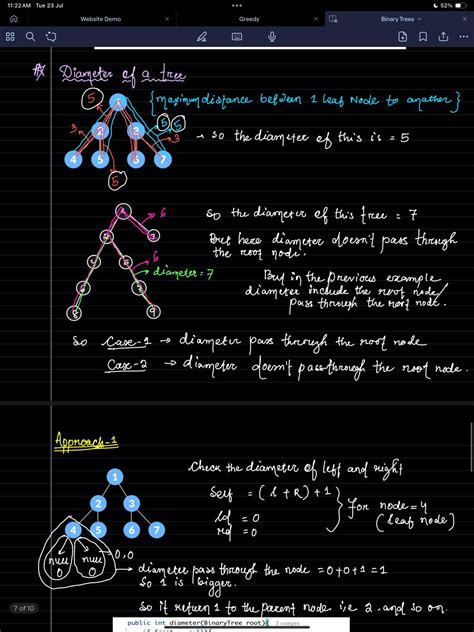 11:22 AM Tue 23 Jul
52%
Website Demo
Greedy
Binary Trees
Diameter of a tree
{maximum distance between 1 leaf Node to another}
5
1
3
2
3
5 5
3
→ so the diameter of this is = 5
4 5 6 7
5
1
6
so the diameter of this tree = 7
But here diameter doesn't pass through
the root node.
2
3
4
5
6
diameter = 7
But in the previous example
diameter include the root node/
pass through the root node.
8
9
so Case-1 → diameter pass through the root node
Case-2 → diameter doesn't pass through the root node.
Approach-1
1
Check the diameter of left and right
2 3
Self = (l + R) + 1
ld = 0
rd = 0
for node = 4
(leaf node)
4 5 6 7
null
0
null
0
0,0
→ diameter pass through the node = 0+0+1 = 1
So 1 is bigger.
So it return 1 to the parent node i.e 2 and so on.
7 of 10
public int diameter(BinaryTree root){ 3 usages